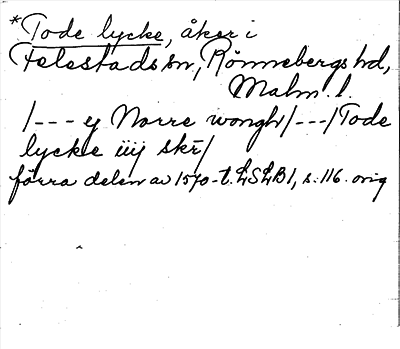 *Tode lycke, åker i
Felestads sn, Rönnebergs hd,
Malm. l.
/--- ey Norre wongh/---/Tode
lycke iiij skr/
förra delen av 1570-t. LSLB1, s. 116. orig